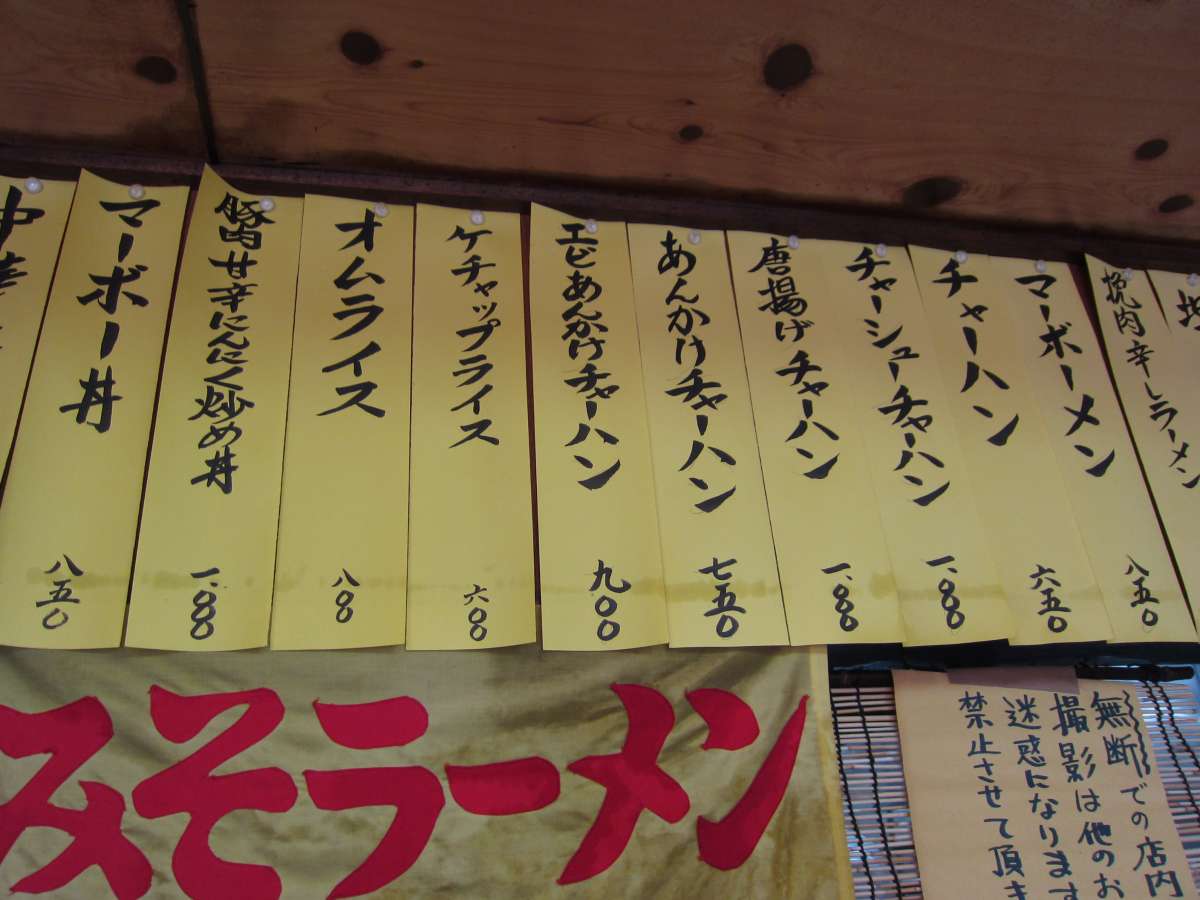 挽肉辛しラーメン
マーボーメン
八五〇
チャーハン
六五〇
チャーシューチャーハン
一、〇〇〇
唐揚げチャーハン
一、〇〇〇
あんかけチャーハン
七五〇
エビあんかけチャーハン
九〇〇
ケチャップライス
六〇〇
オムライス
八〇〇
豚肉甘辛にんにく炒め丼
一、〇〇〇
マーボー丼
八五〇
中
みそラーメン
無断での店内
撮影は他のお
迷惑になります
禁止させて頂き